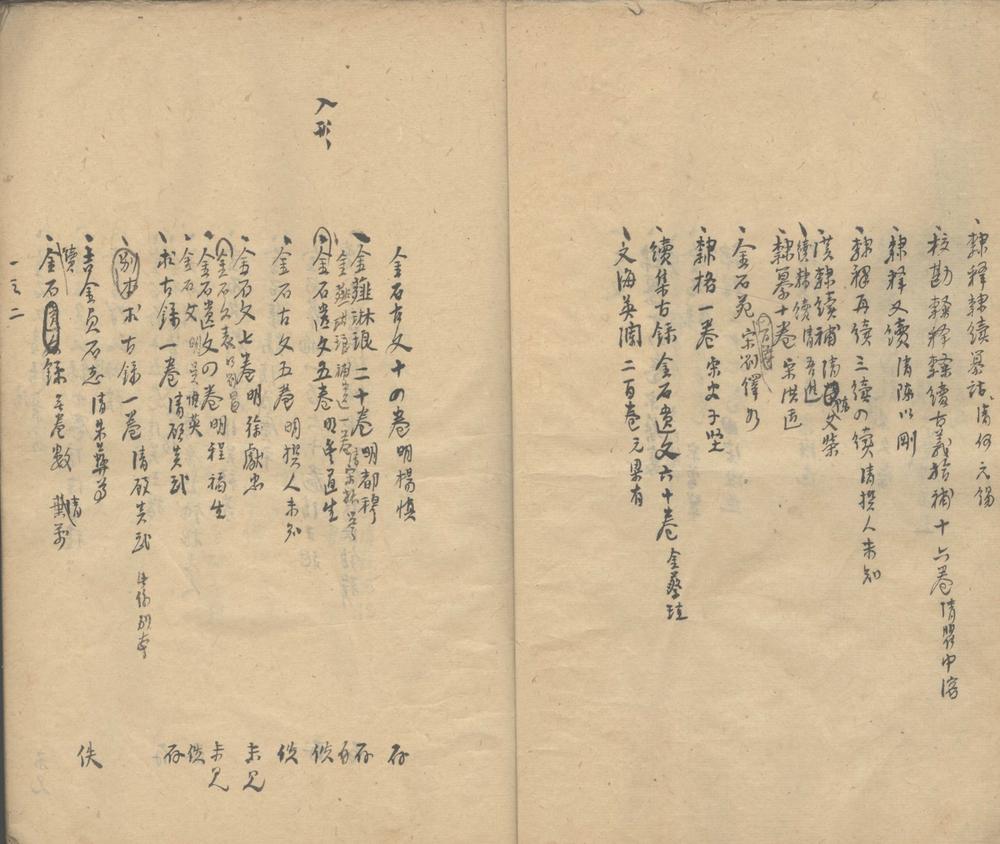 隸釋隸續纂詁 清何元錫
校勘隸釋隸續古義拾補十六卷 清瞿中溶
隸釋又續 清陳以剛
隸釋再續三續四續 清撰人未知
漢隸續補 清 文柴
續隸續 清吾進
隸纂十卷 宋洪适
金石苑 宋劉
隸格一卷 宋史子堅
續集古錄金石遺文六十卷 金蔡珪
文海英瀾二百卷 元梁有
金石古文十四卷 明楊慎 存
金薤琳琅二十卷 明都穆 存
金薤琳琅補遺一卷 清宋振譽 存
金石遺文五卷 明豐道生 佚
入形
金石古文五卷 明撰人未知 佚
金石文七卷 明徐獻忠 未見
金石文表 明劉昌
金石遺文四卷 明程福生 未見
金石文 明吳慎英 佚
求古錄一卷 清顧炎武 存
別本求古錄一卷 清顧炎武
吉金貞石志 清朱彝尊 佚
續金石錄 無卷數 清
一三二